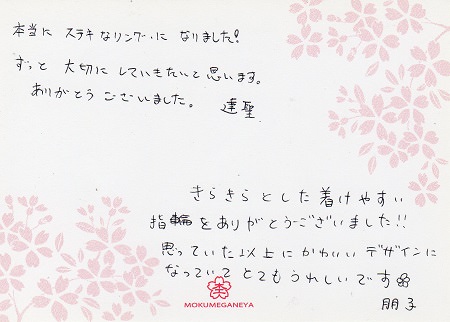 本当に ステキなリングに なりました!
ずっと 大切に していきたいと思います。
ありがとう ございました。 達聖
きらきら とした 着けやすい
指輪をありがとうございました!!
思っていた以上に かわいい デザインに
なっていて とてもうれしいです
朋子
MOKUMEGANEYA